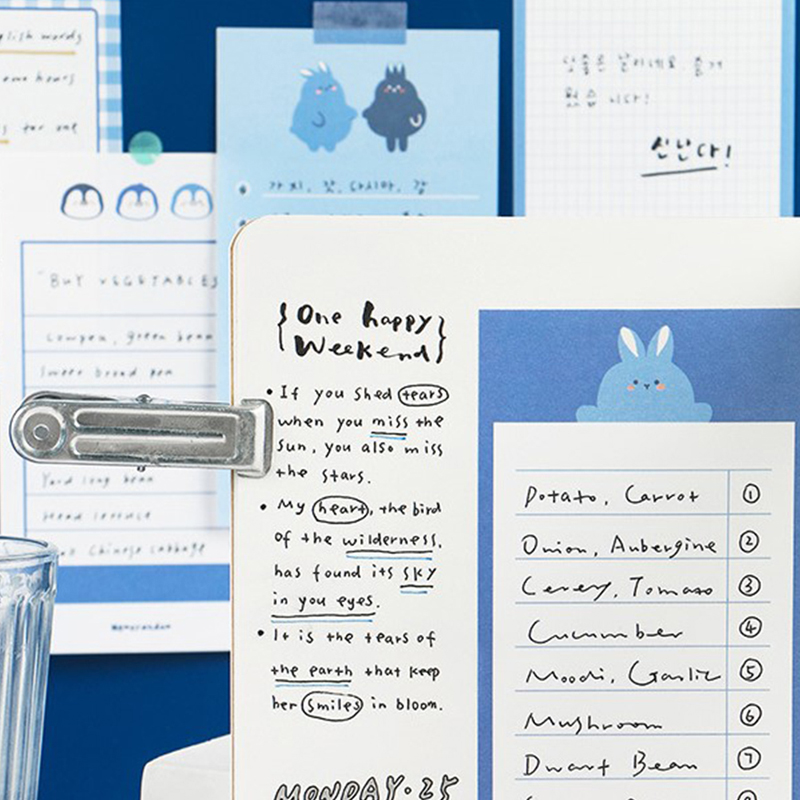 English words
hours
for one
"BUY VEGETABLES
Cowpea, green bean
Sweet broad pea
Yard long bean
Head lettuce
Chinese cabbage
Memorandum
가지, 갓, 다시마, 감
신난다!
{One happy
Weekend}
• If you shed tears
when you miss the
sun, you also miss
the stars.
• My heart, the bird
of the wilderness,
has found its sky
in you eyes.
• It is the tears of
the earth that keep
her smiles in bloom.
MONDAY·25
Potato, Carrot ①
Onion, Aubergine ②
Tomato ③
Cucumber ④
Moodi, Garlic ⑤
Mushroom ⑥
Dwart Bean ⑦